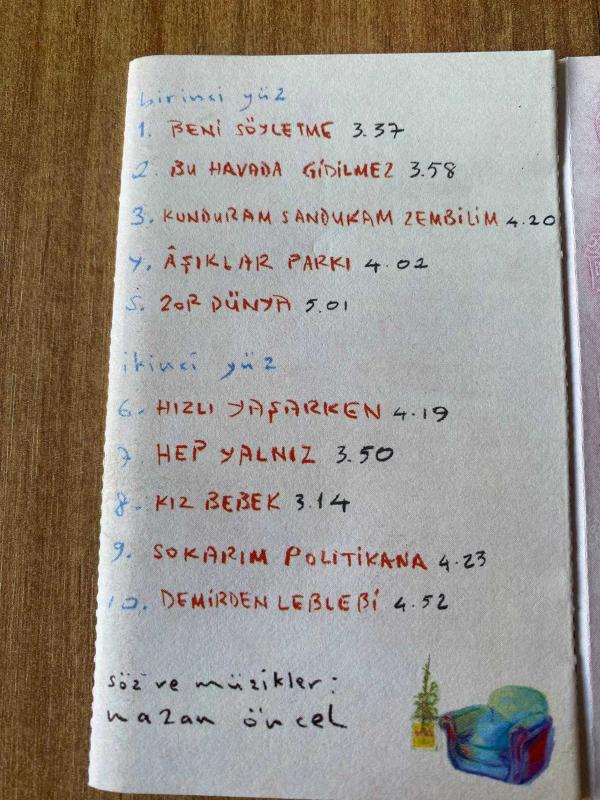 birinci yüz
1. BENİ SÖYLETME 3.37
2. BU HAVADA GİDİLMEZ 3.58
3. KUNDURAM SANDUKAM ZEMBİLİM 4.20
4. ÂŞIKLAR PARKI 4.02
5. ZOR DÜNYA 5.01
ikinci yüz
6. HIZLI YAŞARKEN 4.19
7. HEP YALNIZ 3.50
8. KIZ BEBEK 3.14
9. SOKARIM POLİTİKANA 4.23
10. DEMİRDEN LEBLEBİ 4.52
söz ve müzikler:
nazan öncel